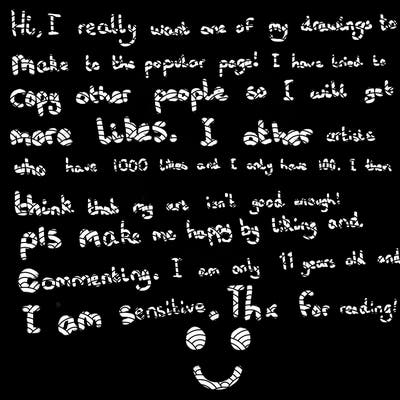 Hi, I really want one of my drawings to
make to the popular page! I have tried to
copy other people so I will get
more likes. I other artists
who have 1000 likes and I only have 100. I then
think that my art isn't good enough!
pls make me happy by liking and
commenting. I am only 11 years old and
I am sensitive. Thx for reading!